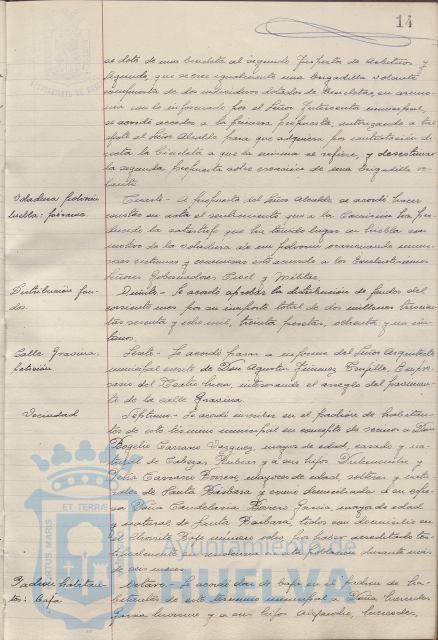 14
se dote de una bicicleta al segundo Inspector de Arbitrios y
segundo, que se cree igualmente una brigadilla volante
compuesta de dos individuos dotados de bicicletas, en armo-
nía con lo informado por el Señor Interventor municipal,
se acordó acceder a la primera propuesta, autorizando a tal
efecto al Señor Alcalde para que adquiera por contratación di-
recta la bicicleta a que la misma se refiere, y desestimar
la segunda propuesta sobre creación de una brigadilla vo-
lante.
Voladura polvorín
Puebla: pésame.
- A propuesta del Señor Alcalde se acordó hacer
constar en acta el sentimiento que a la Comisión ha pro-
ducido la catástrofe que ha tenido lugar en Puebla con
motivo de la voladura de un polvorín ocasionando nume-
rosas víctimas y comunicar este acuerdo a los Excelentísimos
Señores Gobernadores Civil y Militar.
Distribución fon-
dos
Quinto.- Se acordó aprobar la distribución de fondos del
corriente mes por su importe total de dos millones trescien-
tas sesenta y ocho mil, treinta pesetas, ochenta y un cén-
timos.
Calle Gravina:
petición
Sexto.- Se acordó pasar a informe del Señor Arquitecto
municipal escrito de Don Agustín Jiménez Trujillo, Empre-
sario del Teatro Mora, interesando el arreglo del pavimen-
to de la calle Gravina.
Vecindad
Séptimo.- Se acordó inscribir en el padrón de habitan-
tes de este término municipal en concepto de vecinos a Don
Rogelio Carrasco Vázquez, mayor de edad, casado y na-
tural de Cabezas Rubias y a sus hijos
Doña Carrasco Romero, mayores de edad, solteras y natu-
rales de Santa Bárbara y como domiciliada a su espo-
sa Doña Candelaria Romero García, mayor de edad
y natural de Santa Bárbara, todos con domicilio en
el Chorrito Bajo número ocho, por haber acreditado tes-
tificalmente su residencia en esta población durante más
de seis meses.
Padrón habitan-
tes: baja
Octavo.- Se acordó dar de baja en el padrón de ha-
bitantes de este término municipal a Doña Mercedes
García Moreno y a sus hijos Alejandro, Mercedes,
Ayuntamiento de
HUELVA
PORTUS MARIS ET TERRAE CUSTODIA